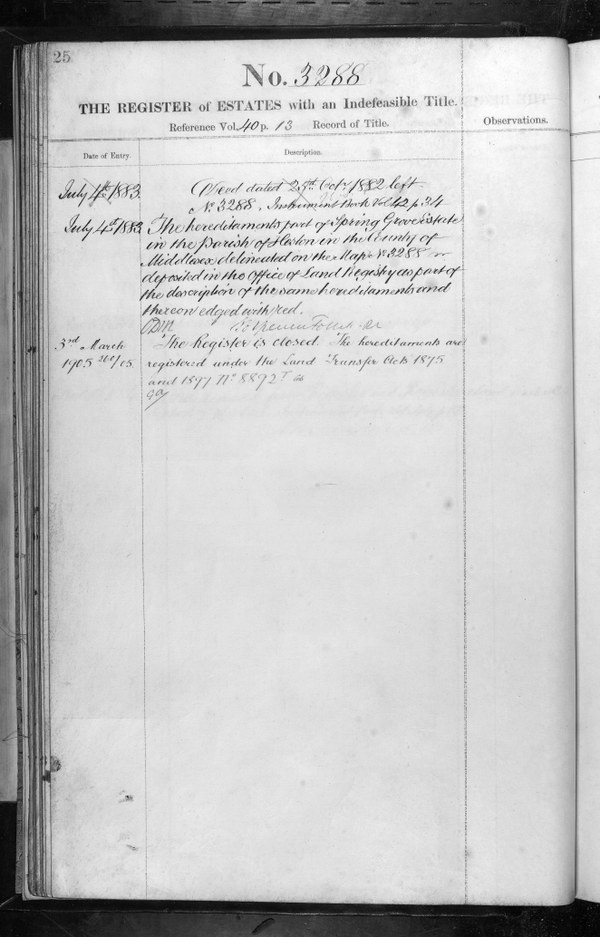 25
No. 3288
THE REGISTER of ESTATES with an Indefeasible Title.
Reference Vol. 40 p. 13 Record of Title.
Observations.
Date of Entry.
Description.
July 4th 1883.
Deed dated 25th Octr. 1882 left
No. 3288. Instrument Book Vol 42 p 34
July 4th 1883
The hereditaments part of Spring Grove Estate
in the Parish of Heston in the County of
Middlesex delineated on the Map No. 3288
deposited in the Office of Land Registry as part of
the description of the same hereditaments and
thereon edged with red.
3rd March
1905
The Register is closed. The hereditaments are
registered under the Land Transfer Acts 1875
and 1897 No. 8892